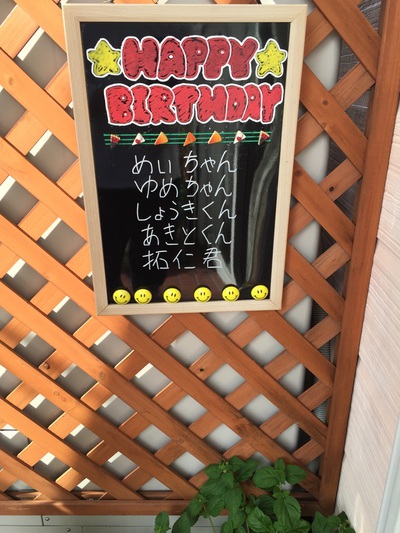 HAPPY
BIRTHDAY
めいちゃん
ゆめちゃん
しょうきくん
あきとくん
拓仁君